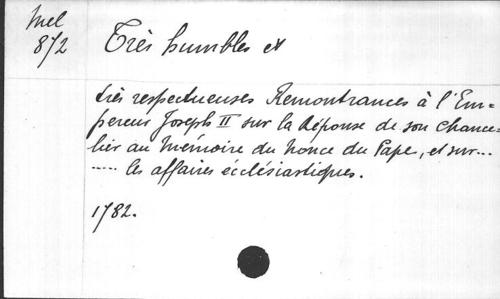 Mel
872
Très humbles et
très respectueuses Remontrances à l'Em-
pereur Joseph II sur la Réponse de son Chance
lier au Mémoire du Nonce du Pape, et sur...
..... les affaires écclésiastiques.
1782.